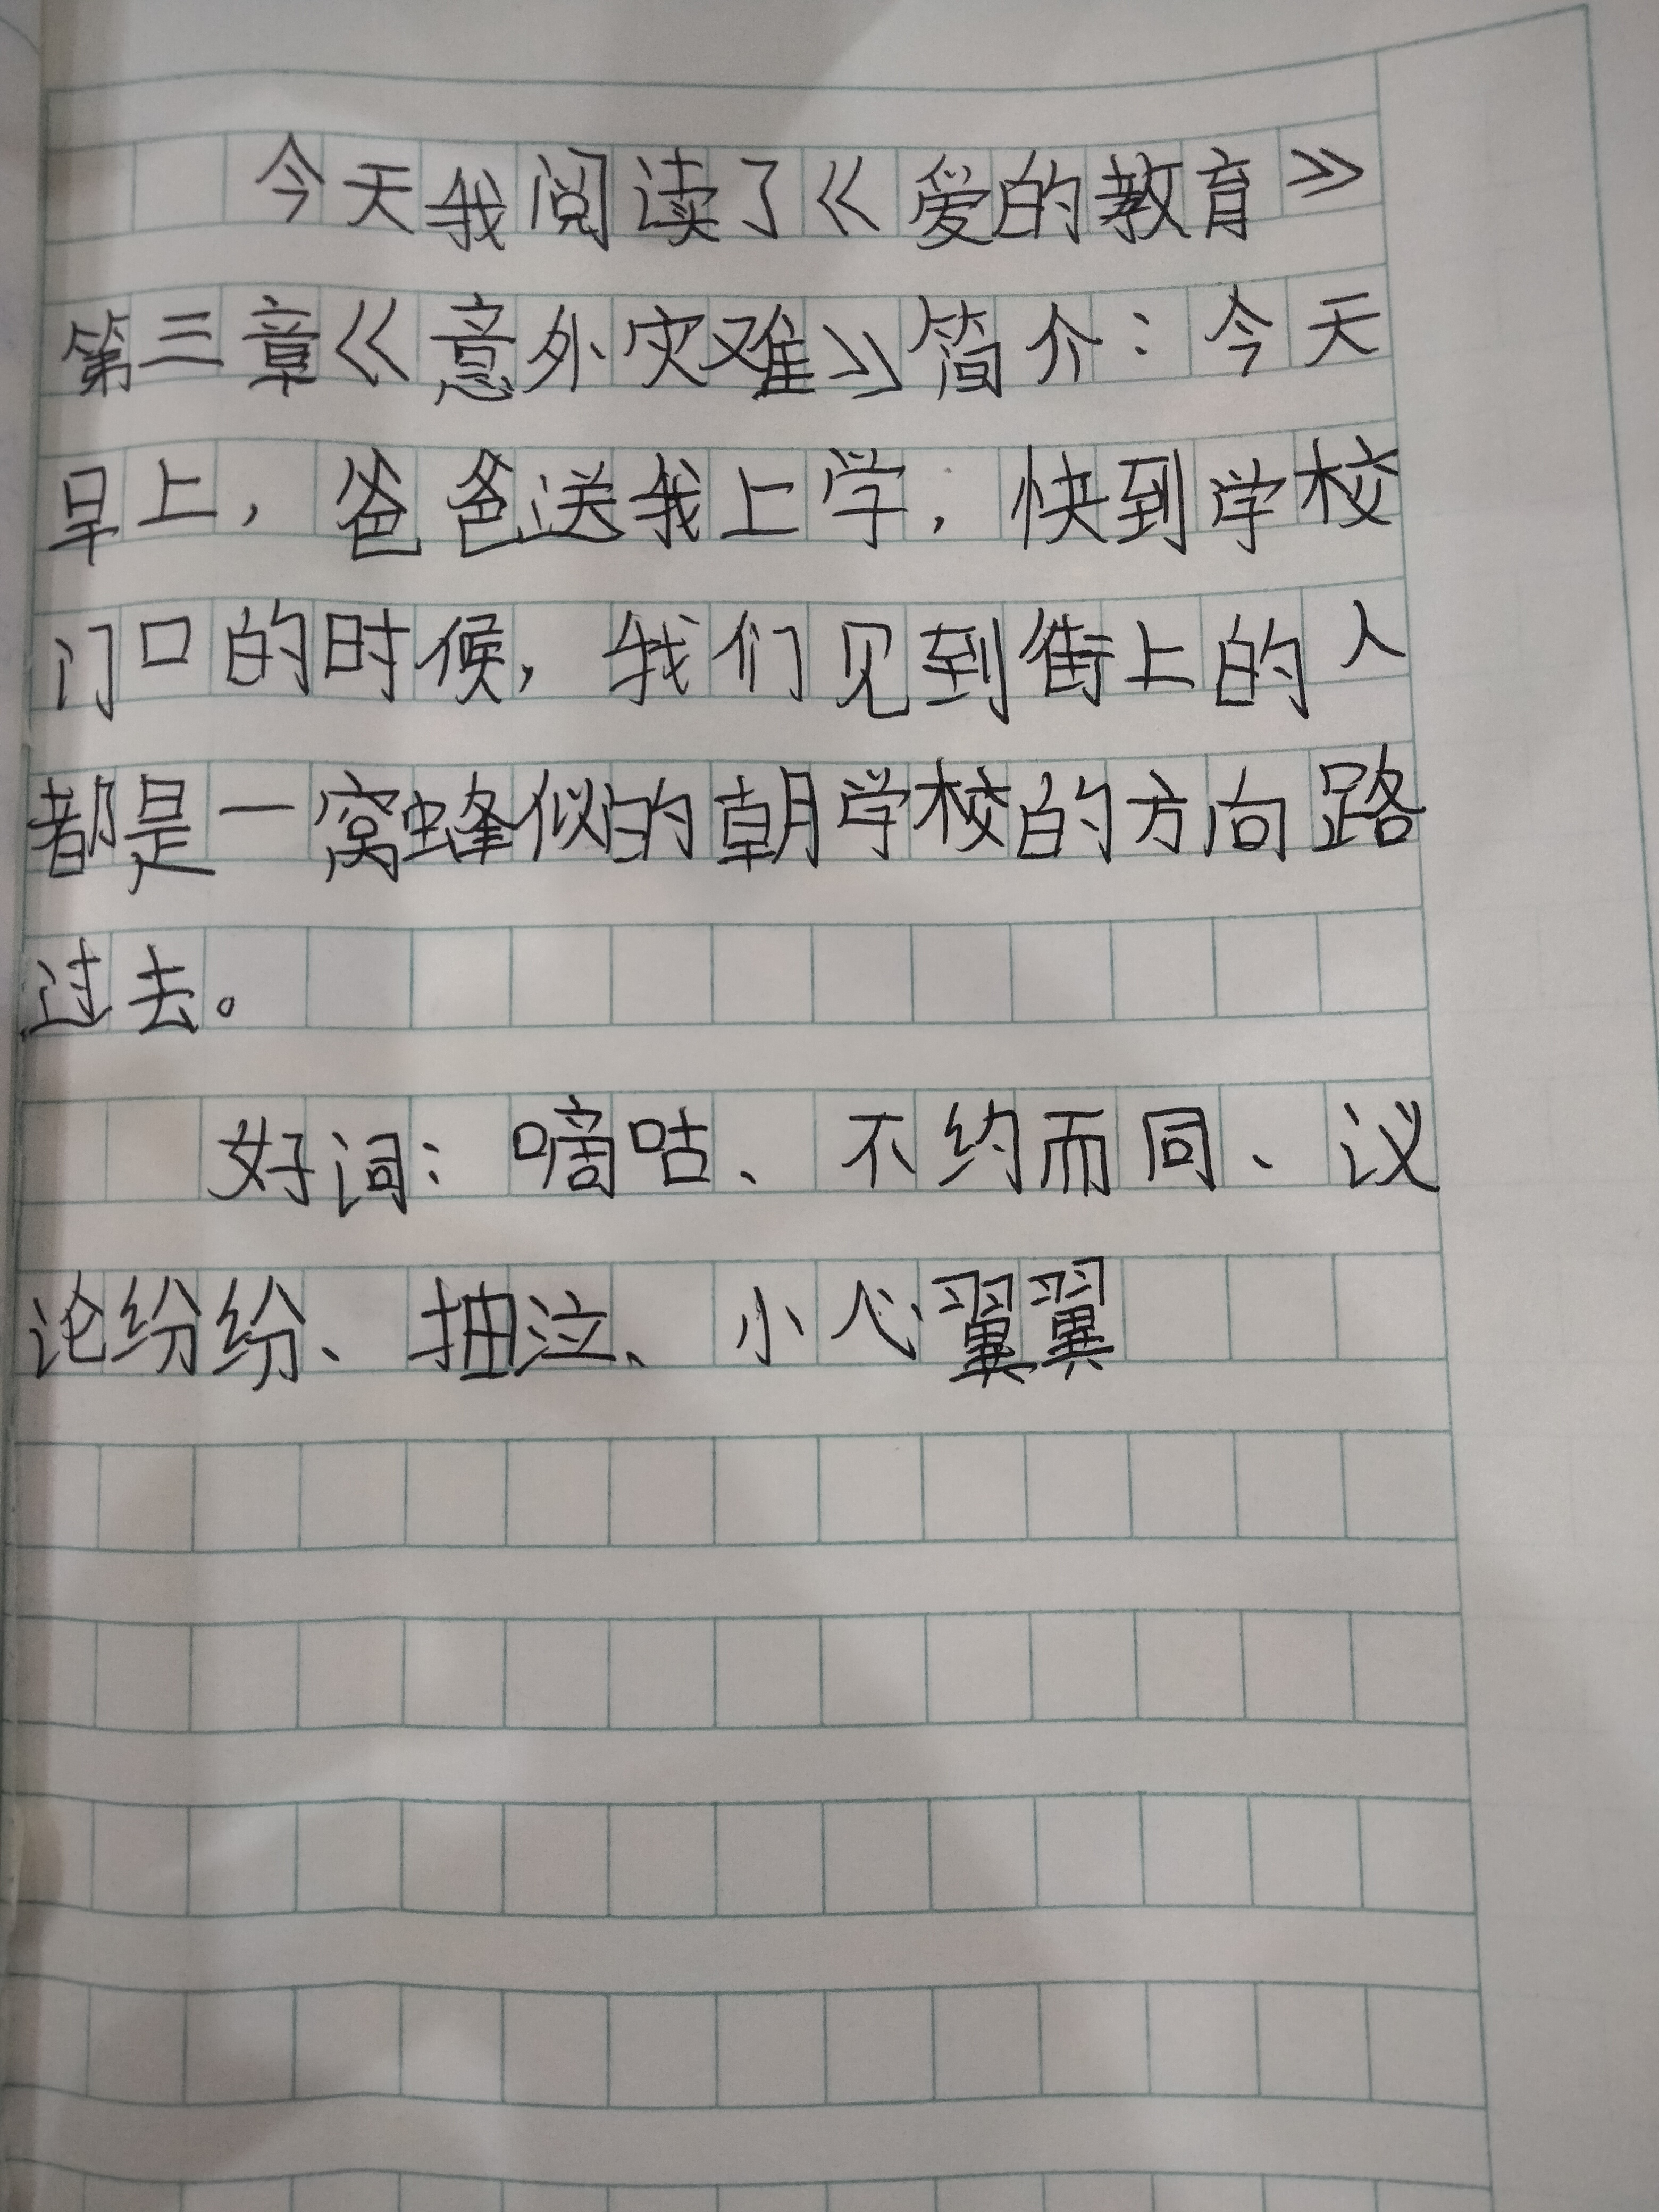 今天我阅读了《爱的教育》
第三章《意外灾难》简介：今天
早上，爸爸送我上学，快到学校
门口的时候，我们见到街上的人
都是一窝蜂似的朝学校的方向路
过去。
好词：嘀咕、不约而同、议
论纷纷、抽泣、小心翼翼